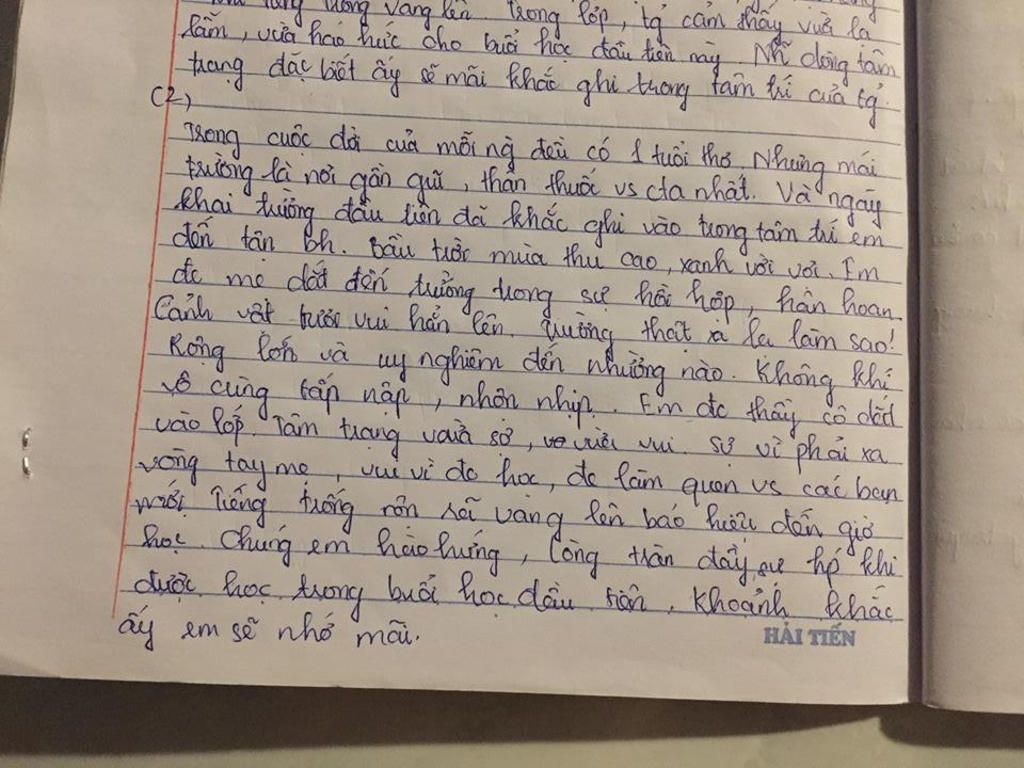 tùng tùng vang lên. Trong lớp, tg cảm thấy vừa lạ
lẫm, vừa háo hức cho buổi học đầu tiên này. Nh~ dòng tâm
trạng đặc biệt ấy sẽ mãi khắc ghi trong tâm trí của tg.
(2)
Trong cuộc đời của mỗi ng` đều có 1 tuổi thơ. Nhưng mái
trường là nơi gần gũi, thân thuộc vs cta nhất. Và ngày
khai trường đầu tiên đã khắc ghi vào trong tâm trí em
đến tận bh. Bầu trời mùa thu cao, xanh vời vợi. Em
đc mẹ dắt đến trường trong sự hồi hộp, hân hoan.
Cảnh vật trước vui hẳn lên. Trường thật xa lạ làm sao!
Rộng lớn và uy nghiêm đến nhường nào. Không khí
vô cùng tấp nập, nhộn nhịp. Em đc thầy cô dắt
vào lớp. Tâm trạng vừa sợ, vừa vui. Sợ vì phải xa
vòng tay mẹ, vui vì đc học, đc làm quen vs các bạn
mới. Tiếng trống rộn rã vang lên báo hiệu đến giờ
học. Chúng em hào hứng, lòng tràn đầy sự hp khi
được học trong buổi học đầu tiên. Khoảnh khắc
ấy em sẽ nhớ mãi.
HẢI TIẾN